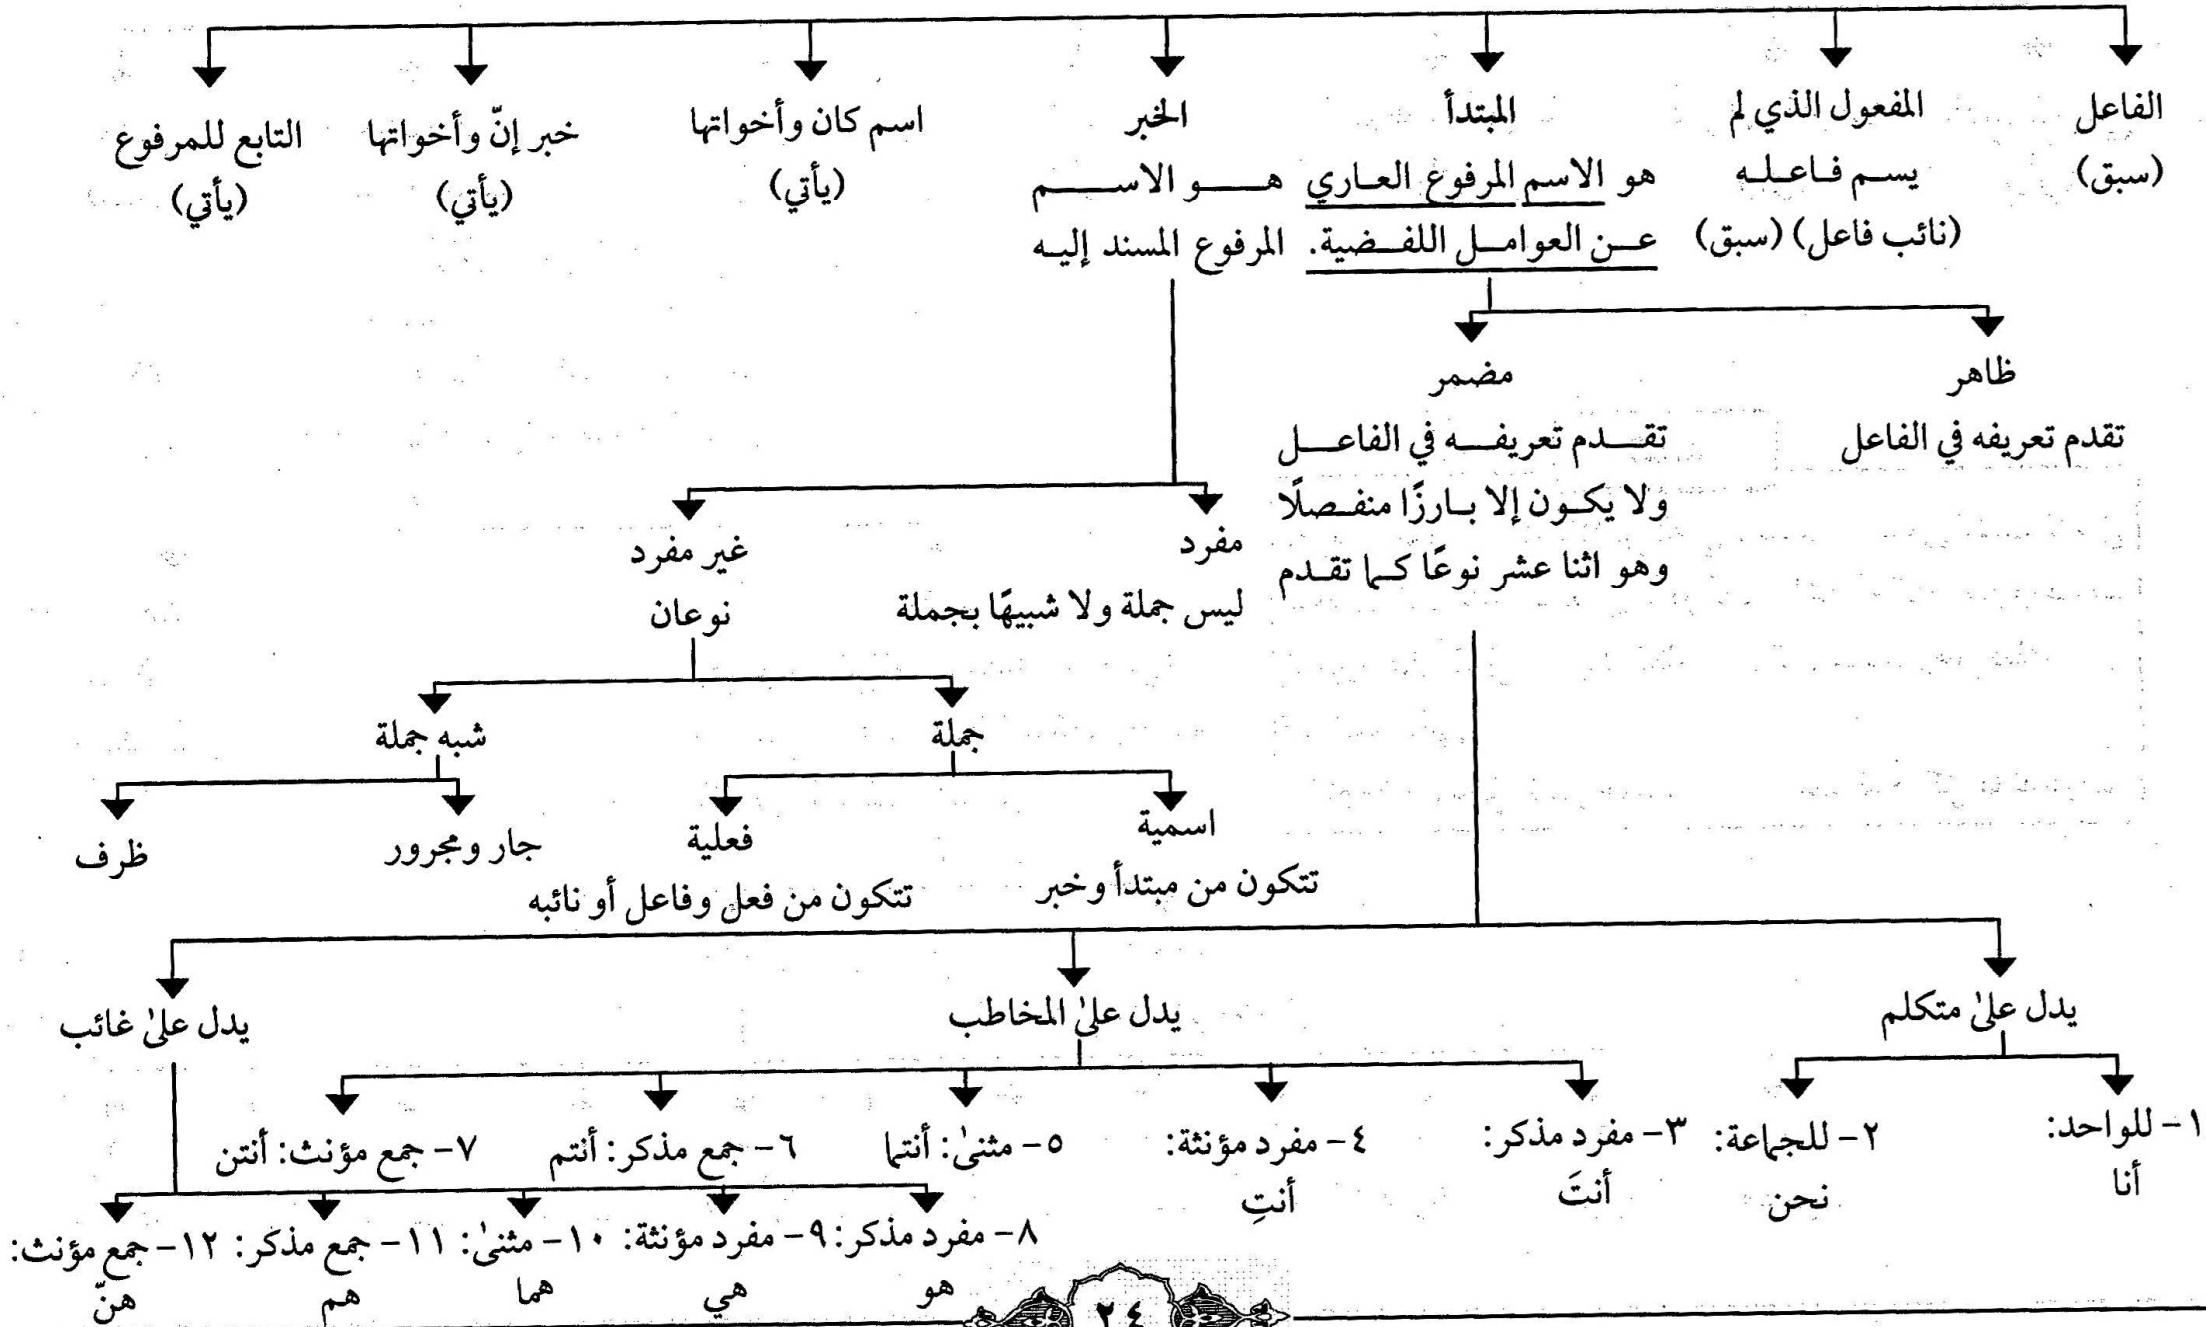 الفاعل
(سبق)
المفعول الذي لم
يسم فاعله
(نائب فاعل) (سبق)
المبتدأ
هو الاسم المرفوع العاري
عن العوامل اللفضية.
الخبر
هو الاسم
المرفوع المسند إليه
اسم كان وأخواتها
(يأتي)
خبر إنّ وأخواتها
(يأتي)
التابع للمرفوع
(يأتي)
ظاهر
تقدم تعريفه في الفاعل
مضمر
تقدم تعريفه في الفاعل
ولا يكون إلا بارزًا منفصلًا
وهو اثنا عشر نوعًا كما تقدم
مفرد
ليس جملة ولا شبيهًا بجملة
غير مفرد
نوعان
جملة
شبه جملة
اسمية
تتكون من مبتدأ وخبر
فعلية
تتكون من فعل وفاعل أو نائبه
جار ومجرور
ظرف
يدل علىٰ متكلم
يدل علىٰ المخاطب
يدل علىٰ غائب
١- للواحد:
أنا
٢- للجماعة:
نحن
٣- مفرد مذكر:
أنتَ
٤- مفرد مؤنثة:
أنتِ
٥- مثنىٰ: أنتما
٦- جمع مذكر: أنتم
٧- جمع مؤنث: أنتن
٨- مفرد مذكر:
هو
٩- مفرد مؤنثة:
هي
١٠- مثنىٰ:
هما
١١- جمع مذكر:
هم
١٢- جمع مؤنث:
هنّ
٢٤